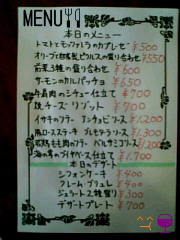 MENU
本日のメニュー
トマトとモッツァレラのカプレゼ ¥500
オリーブと自家製ピクルスの盛り合わせ ¥550
前菜3種の盛り合わせ ¥600
サーモンのカルパッチョ ¥650
牛肩肉のシチュー仕立て ¥700
焼チーズリゾット ¥700
イサキのソテー ソース ¥1,200
肩ロースステーキ ソース ¥1,300
もも肉のソテー バルサミコソース ¥1,200
海の幸のブイヤベース仕立て ¥1,700
本日のデザート
シフォンケーキ ¥400
クレームブリュレ ¥400
ジェラート2種盛り ¥300
デザートプレート ¥700